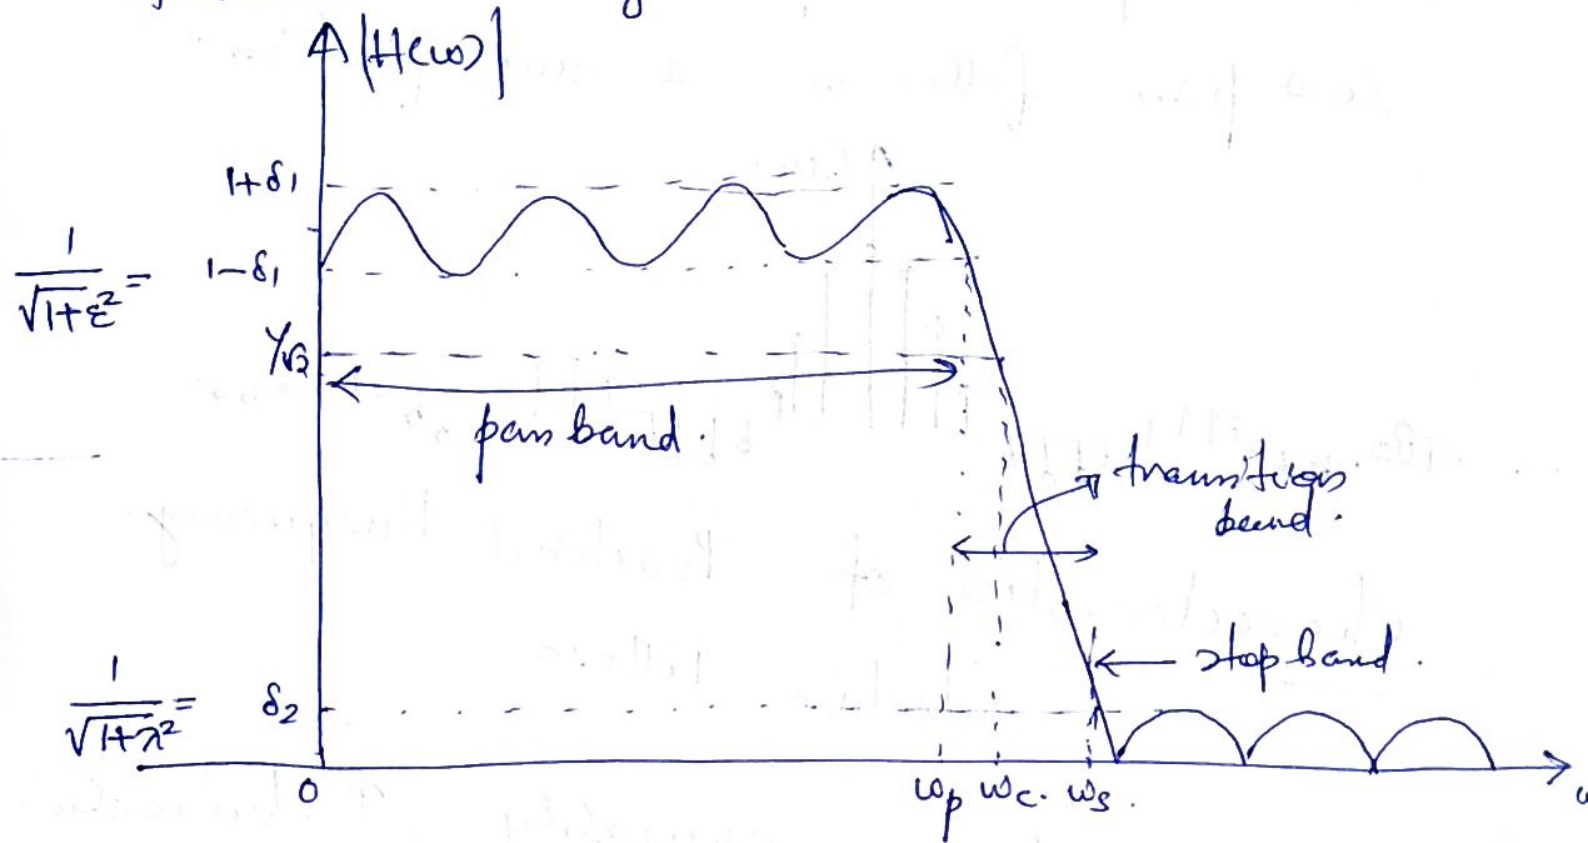 |H(ω)|
1+δ1
1/√1+ε² = 1-δ1
1/√2
pass band.
transition
band.
← stop band.
1/√1+λ² = δ2
0
ωp ωc. ωs.